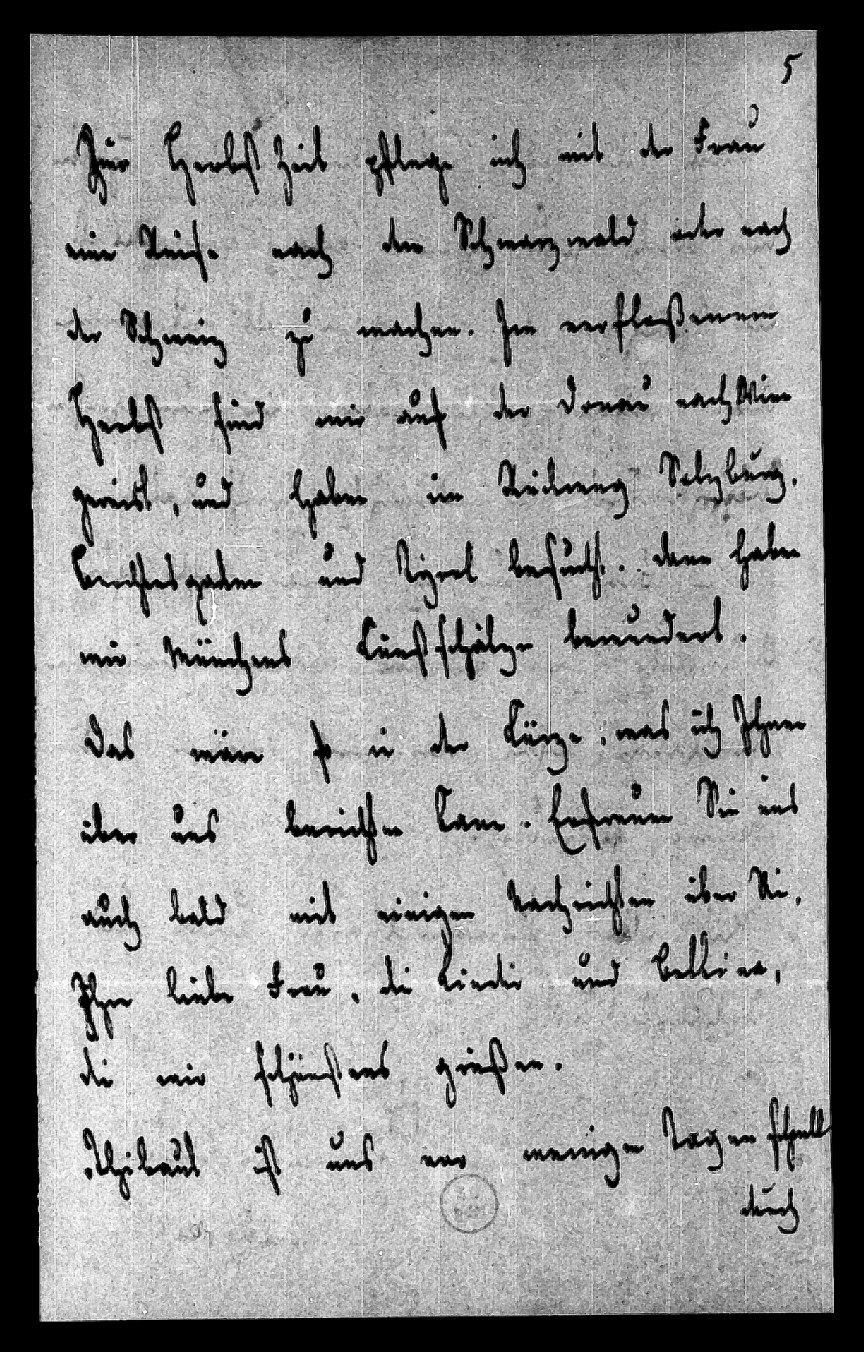 5
Zur Herbst Zeit pflege ich mit der Frau
eine Reise nach dem Schwarzwald oder nach
der Schweiz zu machen. Im verfloßenen
Herbst sind wir auf der Donau nach Wien
gereist, und haben im Rückweg Salzburg,
Berchtesgaden und Tyrol besucht. dann haben
wir Münchens Kunstschätze bewundert.
Das wäre so in der Kürze, was ich Ihnen
über uns berichten kann. Erfreuen Sie uns
auch bald mit einigen Nachrichten über Sie,
Ihre liebe Frau, die Kinder und
die wir schönstens grüßen.
Thibaut ist uns vor wenigen Tagen schnell
durch